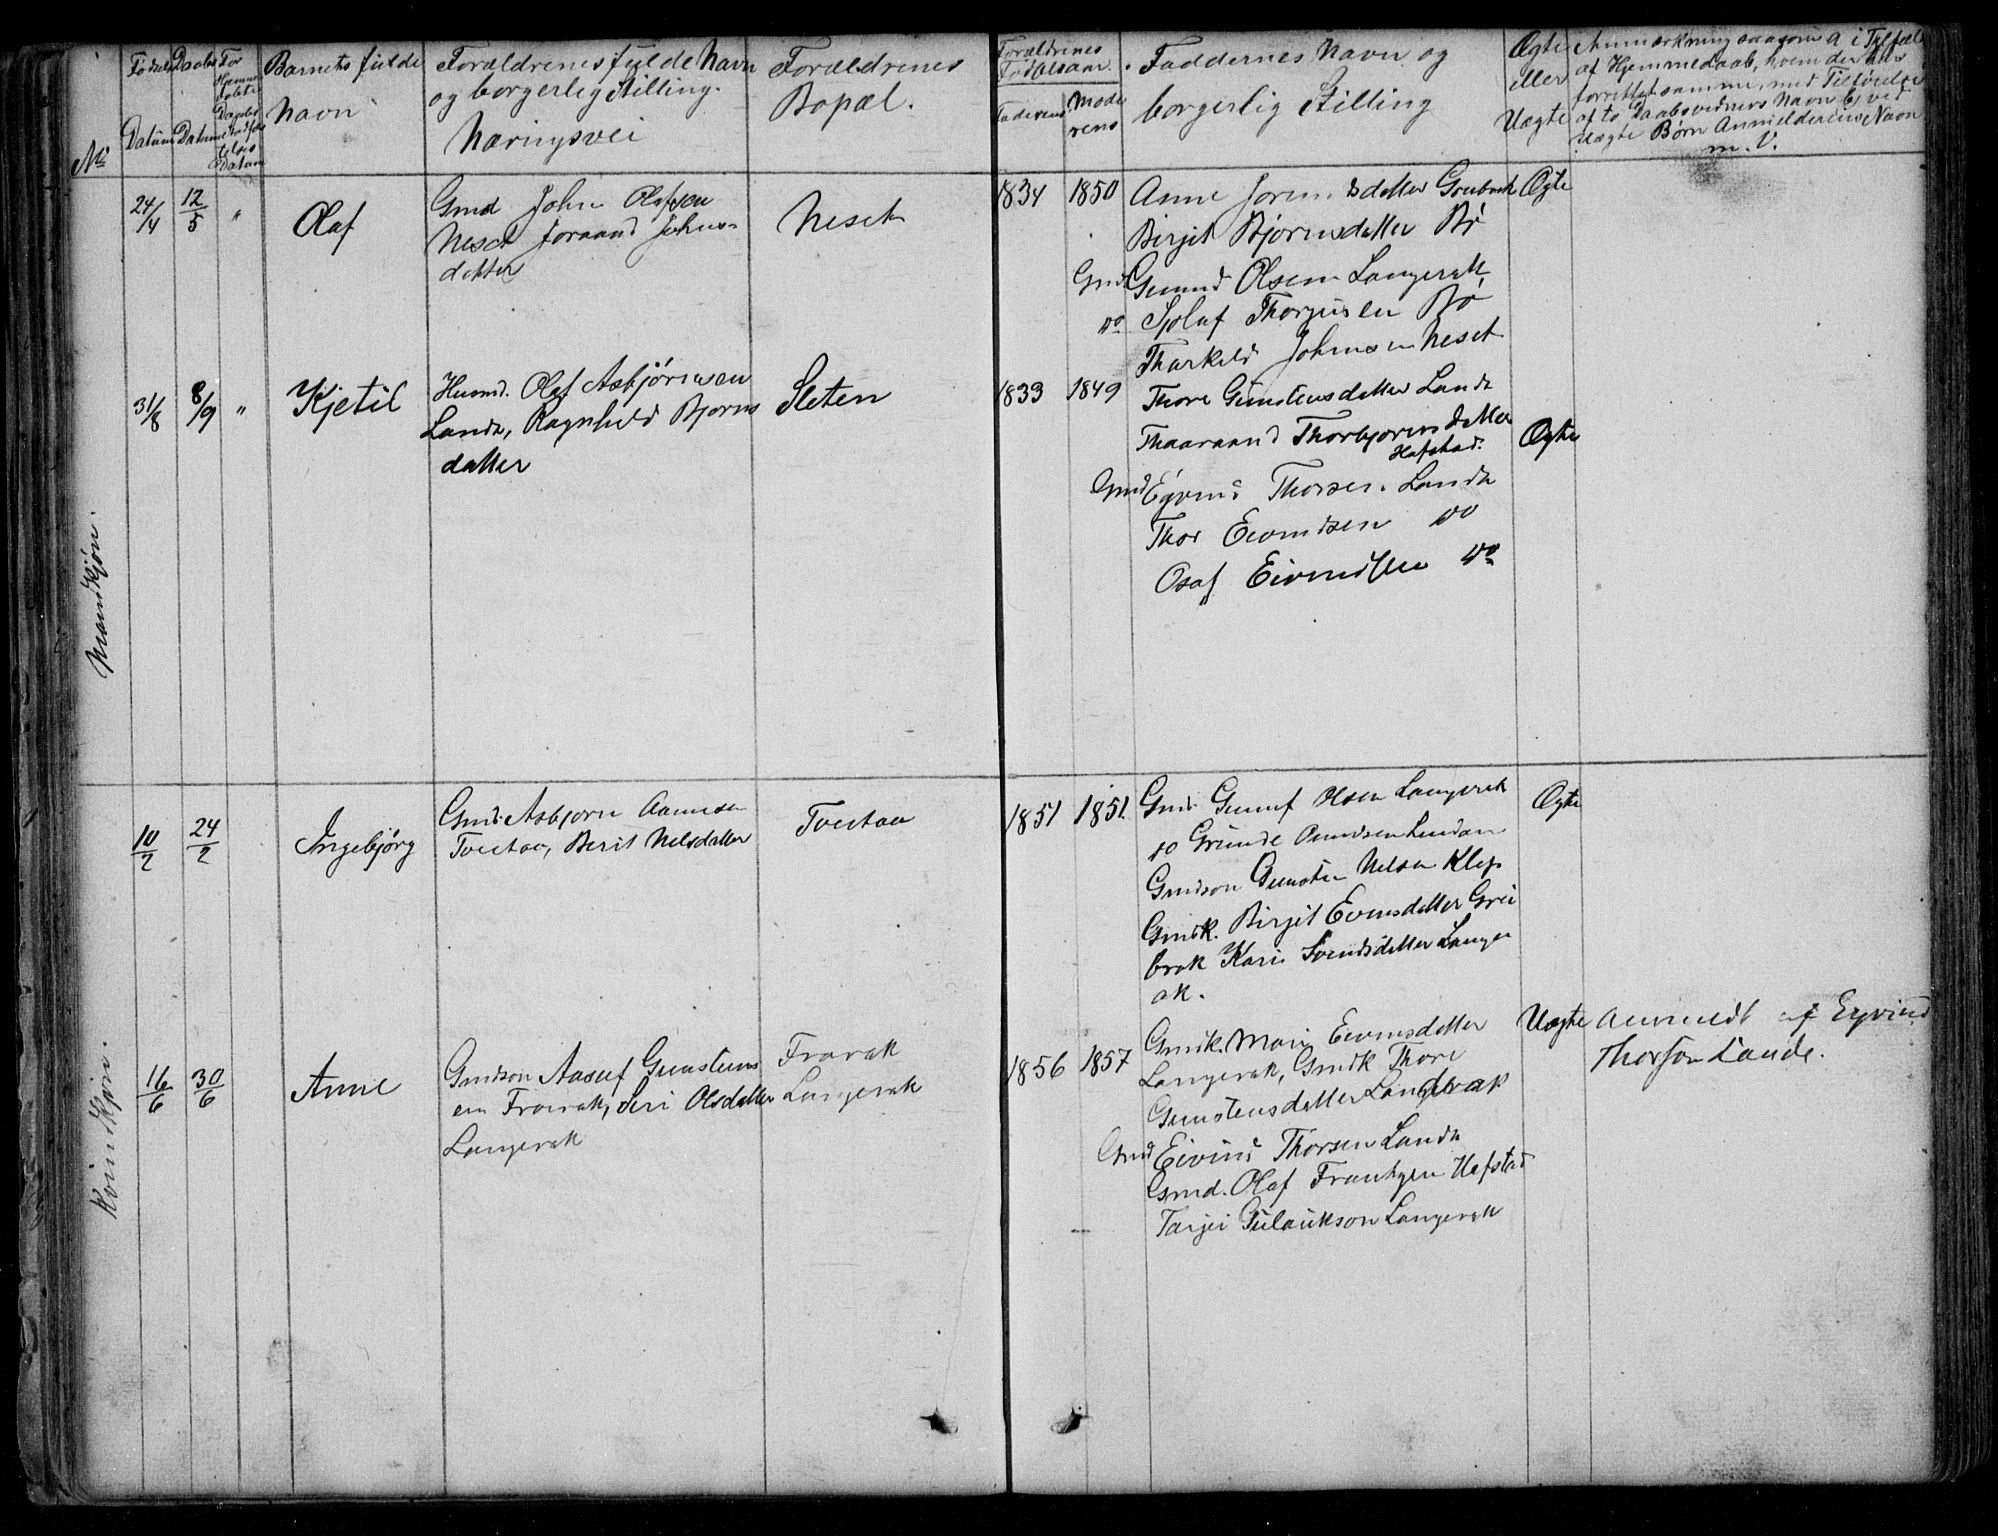 No
Fødsels Datum
Daabs Datum
For Hjemme døbte Daabs stadfæs telses Datum
Barnets fulde
Navn
Forældrenes fulde Navn
og borgerlig Stilling.
Næringsvei
Forældrenes
Bopæl.
Forældrenes
Fødselsaar
Faderens
Mode
rens
Faddernes Navn og
borgerlig Stilling
Ægte
eller
Uægte
Anmærkning saasom a i Tilfæl
af Hjemmedaab, hvem der har
forrettet samme, med Tilføielse
af to Daabsvidners Navn b, ved
uægte Børn Anmelderens Navn
m. V.
Mandkjøn.
24/4 12/5 "
Olaf
Gmd John Olafsen
Neset Joraand Johns-
datter
Neset
1834 1850
Anne Jorundsdatter
Birgit Bjørnsdatter Bø
Gmd Gunuf Olsen Langerak
do Thorjusen Bø
Tharkeld Johnsen Neset
Ægte
31/8 8/9 "
Kjetil
Husmd. Olaf Asbjørnsen
Lande, Ragnhild Bjorns
datter
Sleten
1833 1849
Thore Gunstensdatter Lande
Thaaraand Thorbjorensdatter
Hafstad.
Gmd Eyvind Thorsen Lande
Thor Eevindsen do
Osaf Eivindsen do
Ægte
Kvindkjøn.
10/2 24/2
Ingebjørg
Gmd. Asbjorn Aannesen
Tveitaa, Berit Nelsdatter
Tveitaa
1851 1851
Gmd. Gunuf Olsen Langerak
do Grunde
Gmdson Gunsten Nelsen Klep
Gmdk. Birgit Evensdatter Grei
brok Kari Svendsdatter Langer
ak.
Ægte
16/6 30/6
Anne
Gmdson Aasuf Gunstens
en Frøirak, Seri Olsdatter
Langerak
Frørak
Langerak
1856 1857
Gmdk. Mari Evensdatter
Langerak, Gmdk Thore
Gunstensdatter Langerak
Gmd Eivind Thorsen Lande
Gmd. Olaf Hefstad
Tarjei Gulaukson Langerak
Uægte
Anmeldt af Eyvind
Thorson Lande.